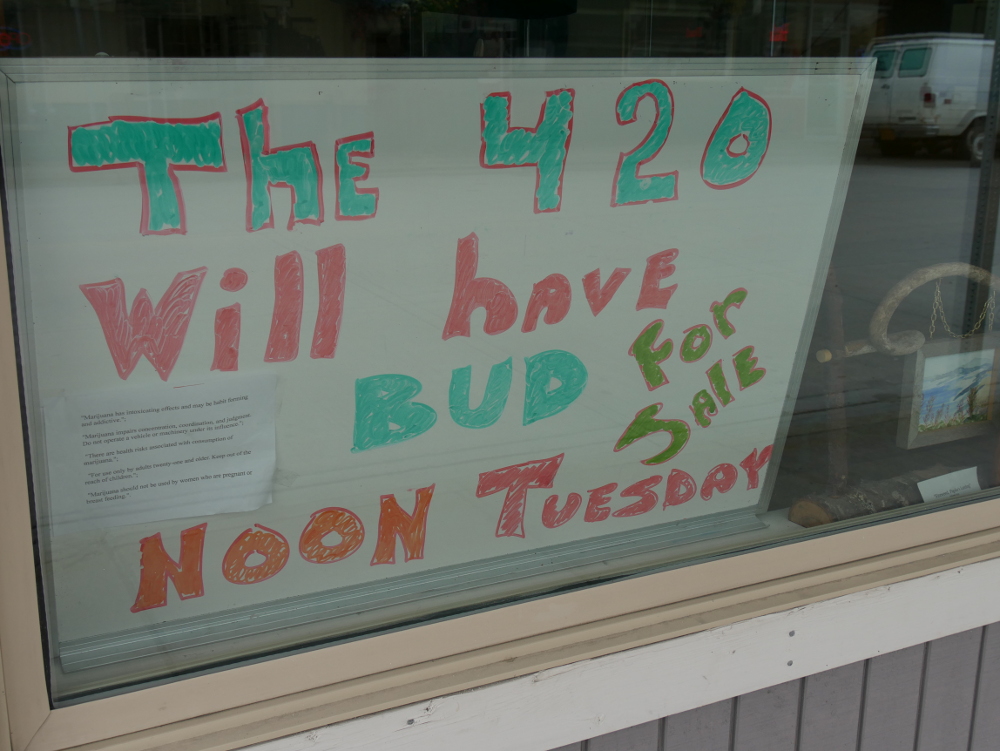 The 420
Will have
BUD For
Sale
NOON TUESDAY
"Marijuana has intoxicating effects and may be habit forming
and addictive.";
"Marijuana impairs concentration, coordination, and judgment.
Do not operate a vehicle or machinery under its influence.";
"There are health risks associated with consumption of
marijuana.";
"For use only by adults twenty-one and older. Keep out of the
reach of children.";
"Marijuana should not be used by women who are pregnant or
breast feeding."